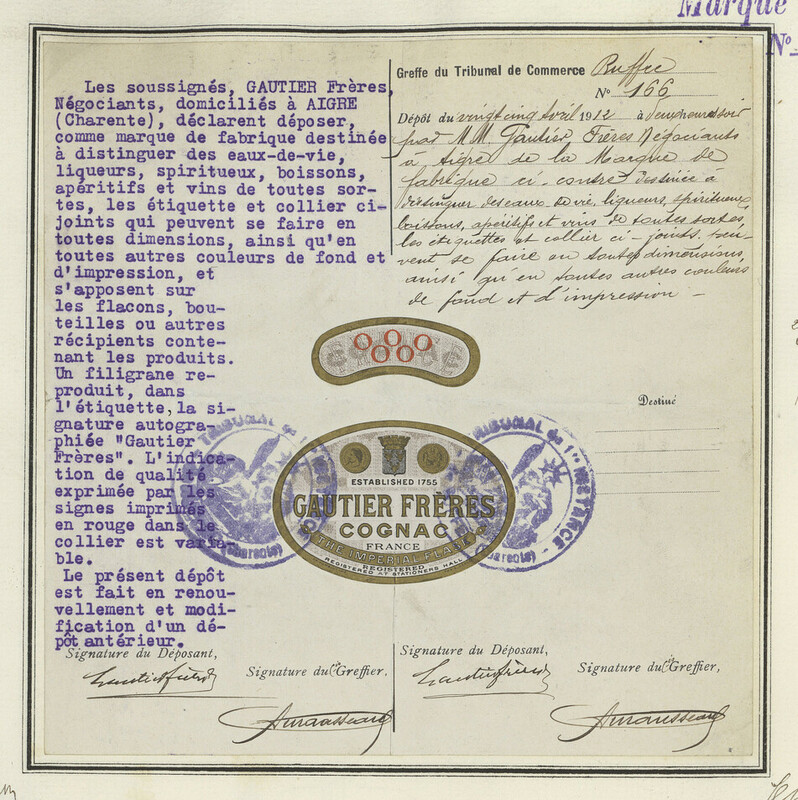 Marque
N°
Les soussignés, GAUTIER Frères,
Négociants, domiciliés à AIGRE
(Charente), déclarent déposer,
comme marque de fabrique destinée
à distinguer des eaux-de-vie,
liqueurs, spiritueux, boissons,
apéritifs et vins de toutes sor-
tes, les étiquette et collier ci-
joints qui peuvent se faire en
toutes dimensions, ainsi qu'en
toutes autres couleurs de fond et
d'impression, et
s'apposent sur
les flacons, bou-
teilles ou autres
récipients conte-
nant les produits.
Un filigrane re-
produit, dans
l'étiquette, la si-
gnature autogra-
phiée "Gautier
Frères". L'indica-
tion de qualité
exprimée par les
signes imprimés
en rouge dans le
collier est varia-
ble.
Le présent dépôt
est fait en renou-
vellement et modi-
fication d'un dé-
pôt antérieur.
Signature du Déposant,
Gautier frères
Signature du Greffier,
Greffe du Tribunal de Commerce Ruffec
N° 166
Dépôt du vingt cinq Avril 1912 à deux heures soir
par M.M. Gautier Frères Négociants
à Aigre de la Marque de
fabrique ci-contre destinée à
distinguer des eaux-de-vie, liqueurs, spiritueux,
boissons, apéritifs et vins de toutes sortes,
les étiquettes et collier ci-joints, peu-
vent se faire en toutes dimensions,
ainsi qu'en toutes autres couleurs
de fond et d'impression —
Destiné
ESTABLISHED 1755
GAUTIER FRÈRES
COGNAC
FRANCE
THE IMPERIAL FLAG
REGISTERED
REGISTERED AT STATIONERS HALL
TRIBUNAL de
(Charente)
TRIBUNAL de 1re INSTANCE
(Charente)
Signature du Déposant,
Gautier frères
Signature du Greffier,